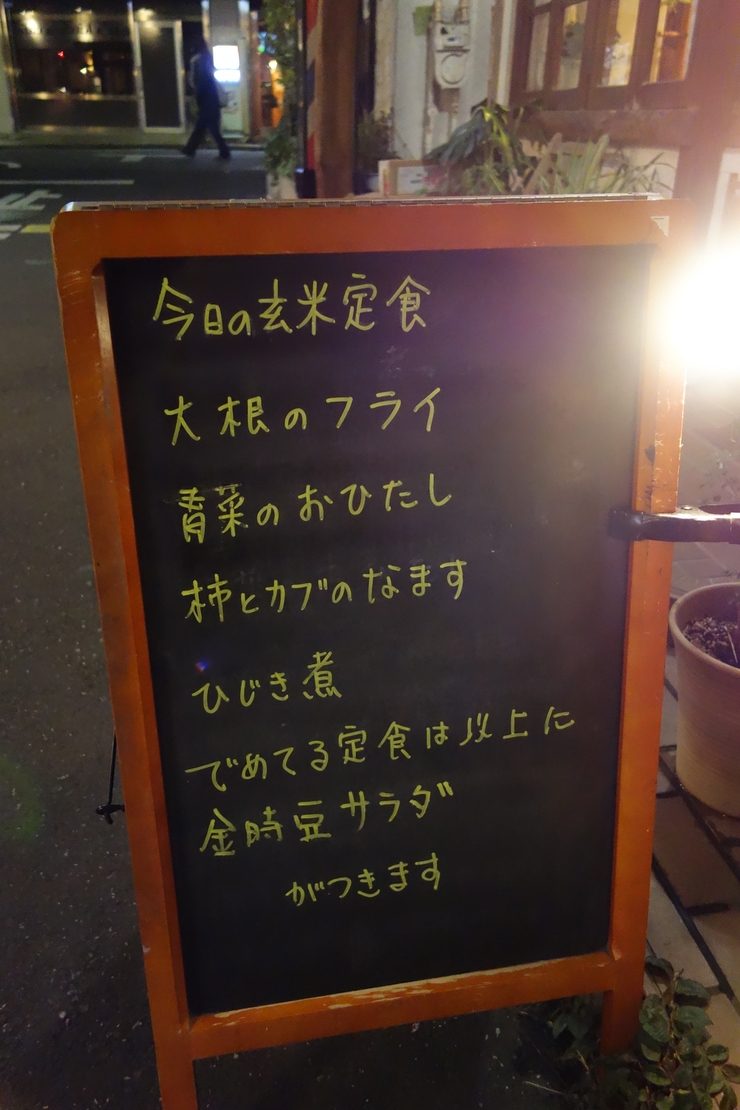 今日の玄米定食
大根のフライ
青菜のおひたし
柿とカブのなます
ひじき煮
でめてる定食は以上に
金時豆サラダ
がつきます